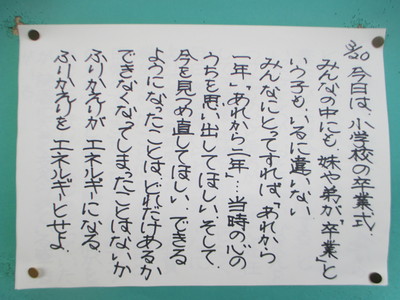 3/20 今日は、小学校の卒業式.
みんなの中にも、妹や弟が「卒業」と
いう子も、いるに違いない
みんなにとってすれば「あれから
一年」「あれから二年」…当時の心の
うちを思い出してほしい、そして、
今を見つめ直してほしい、できる
ようになったことは、どれだけあるか
できなくなってしまったことはないか
ふりかえりが エネルギーになる.
ふりかえりを エネルギーとせよ.